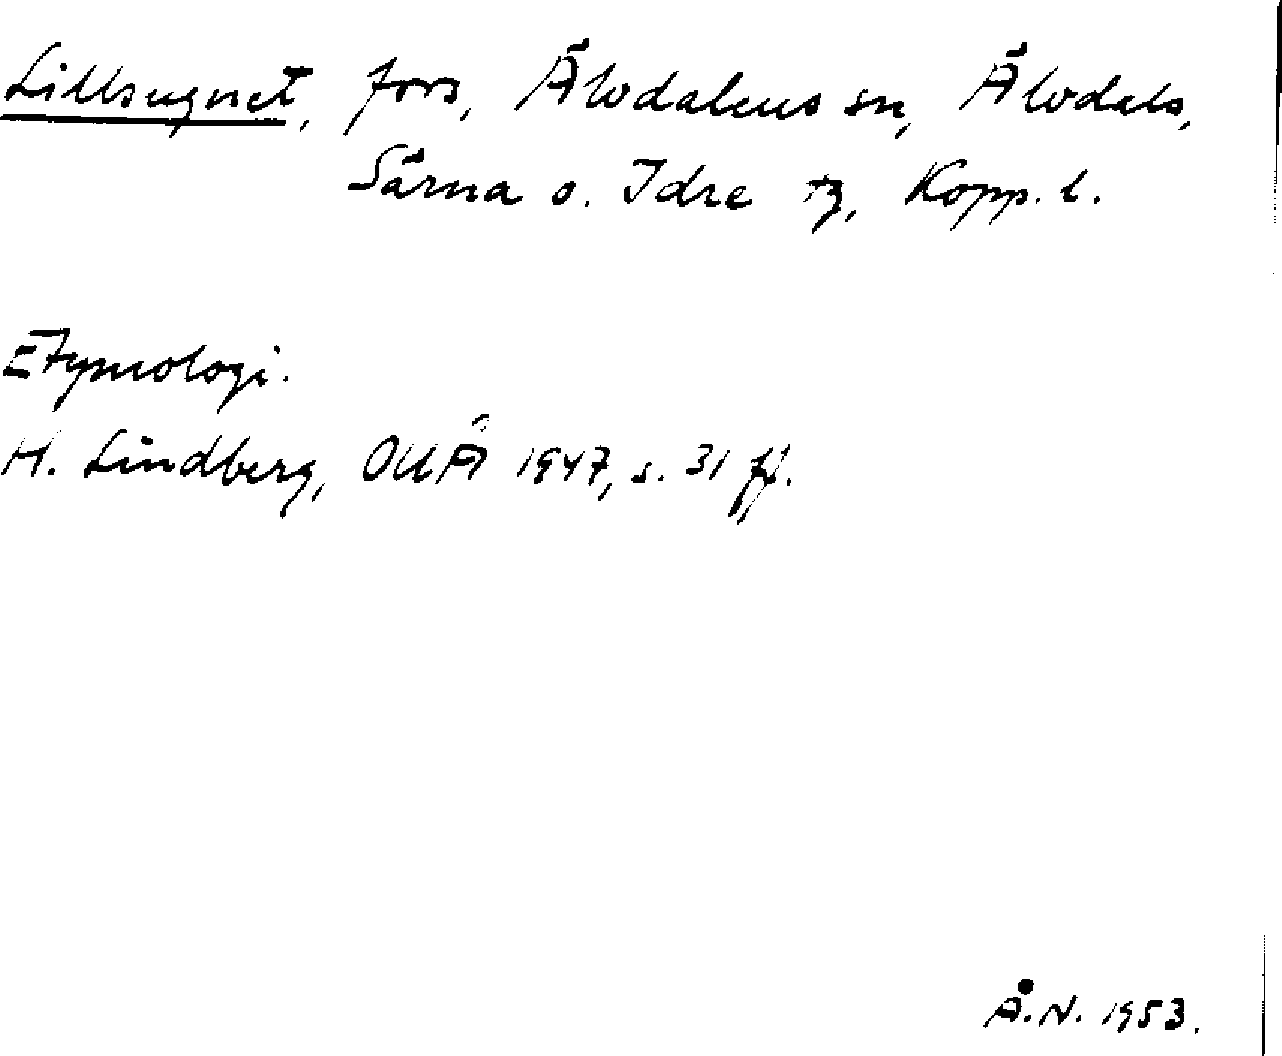 Lillsugnet, fors, Älvdalens sn, Älvdals,
Särna o. Idre tg, Kopp. l.
Etymologi.
H. Lindberg, OUÅ 1947, s. 31 ff.
Å.N. 1953.